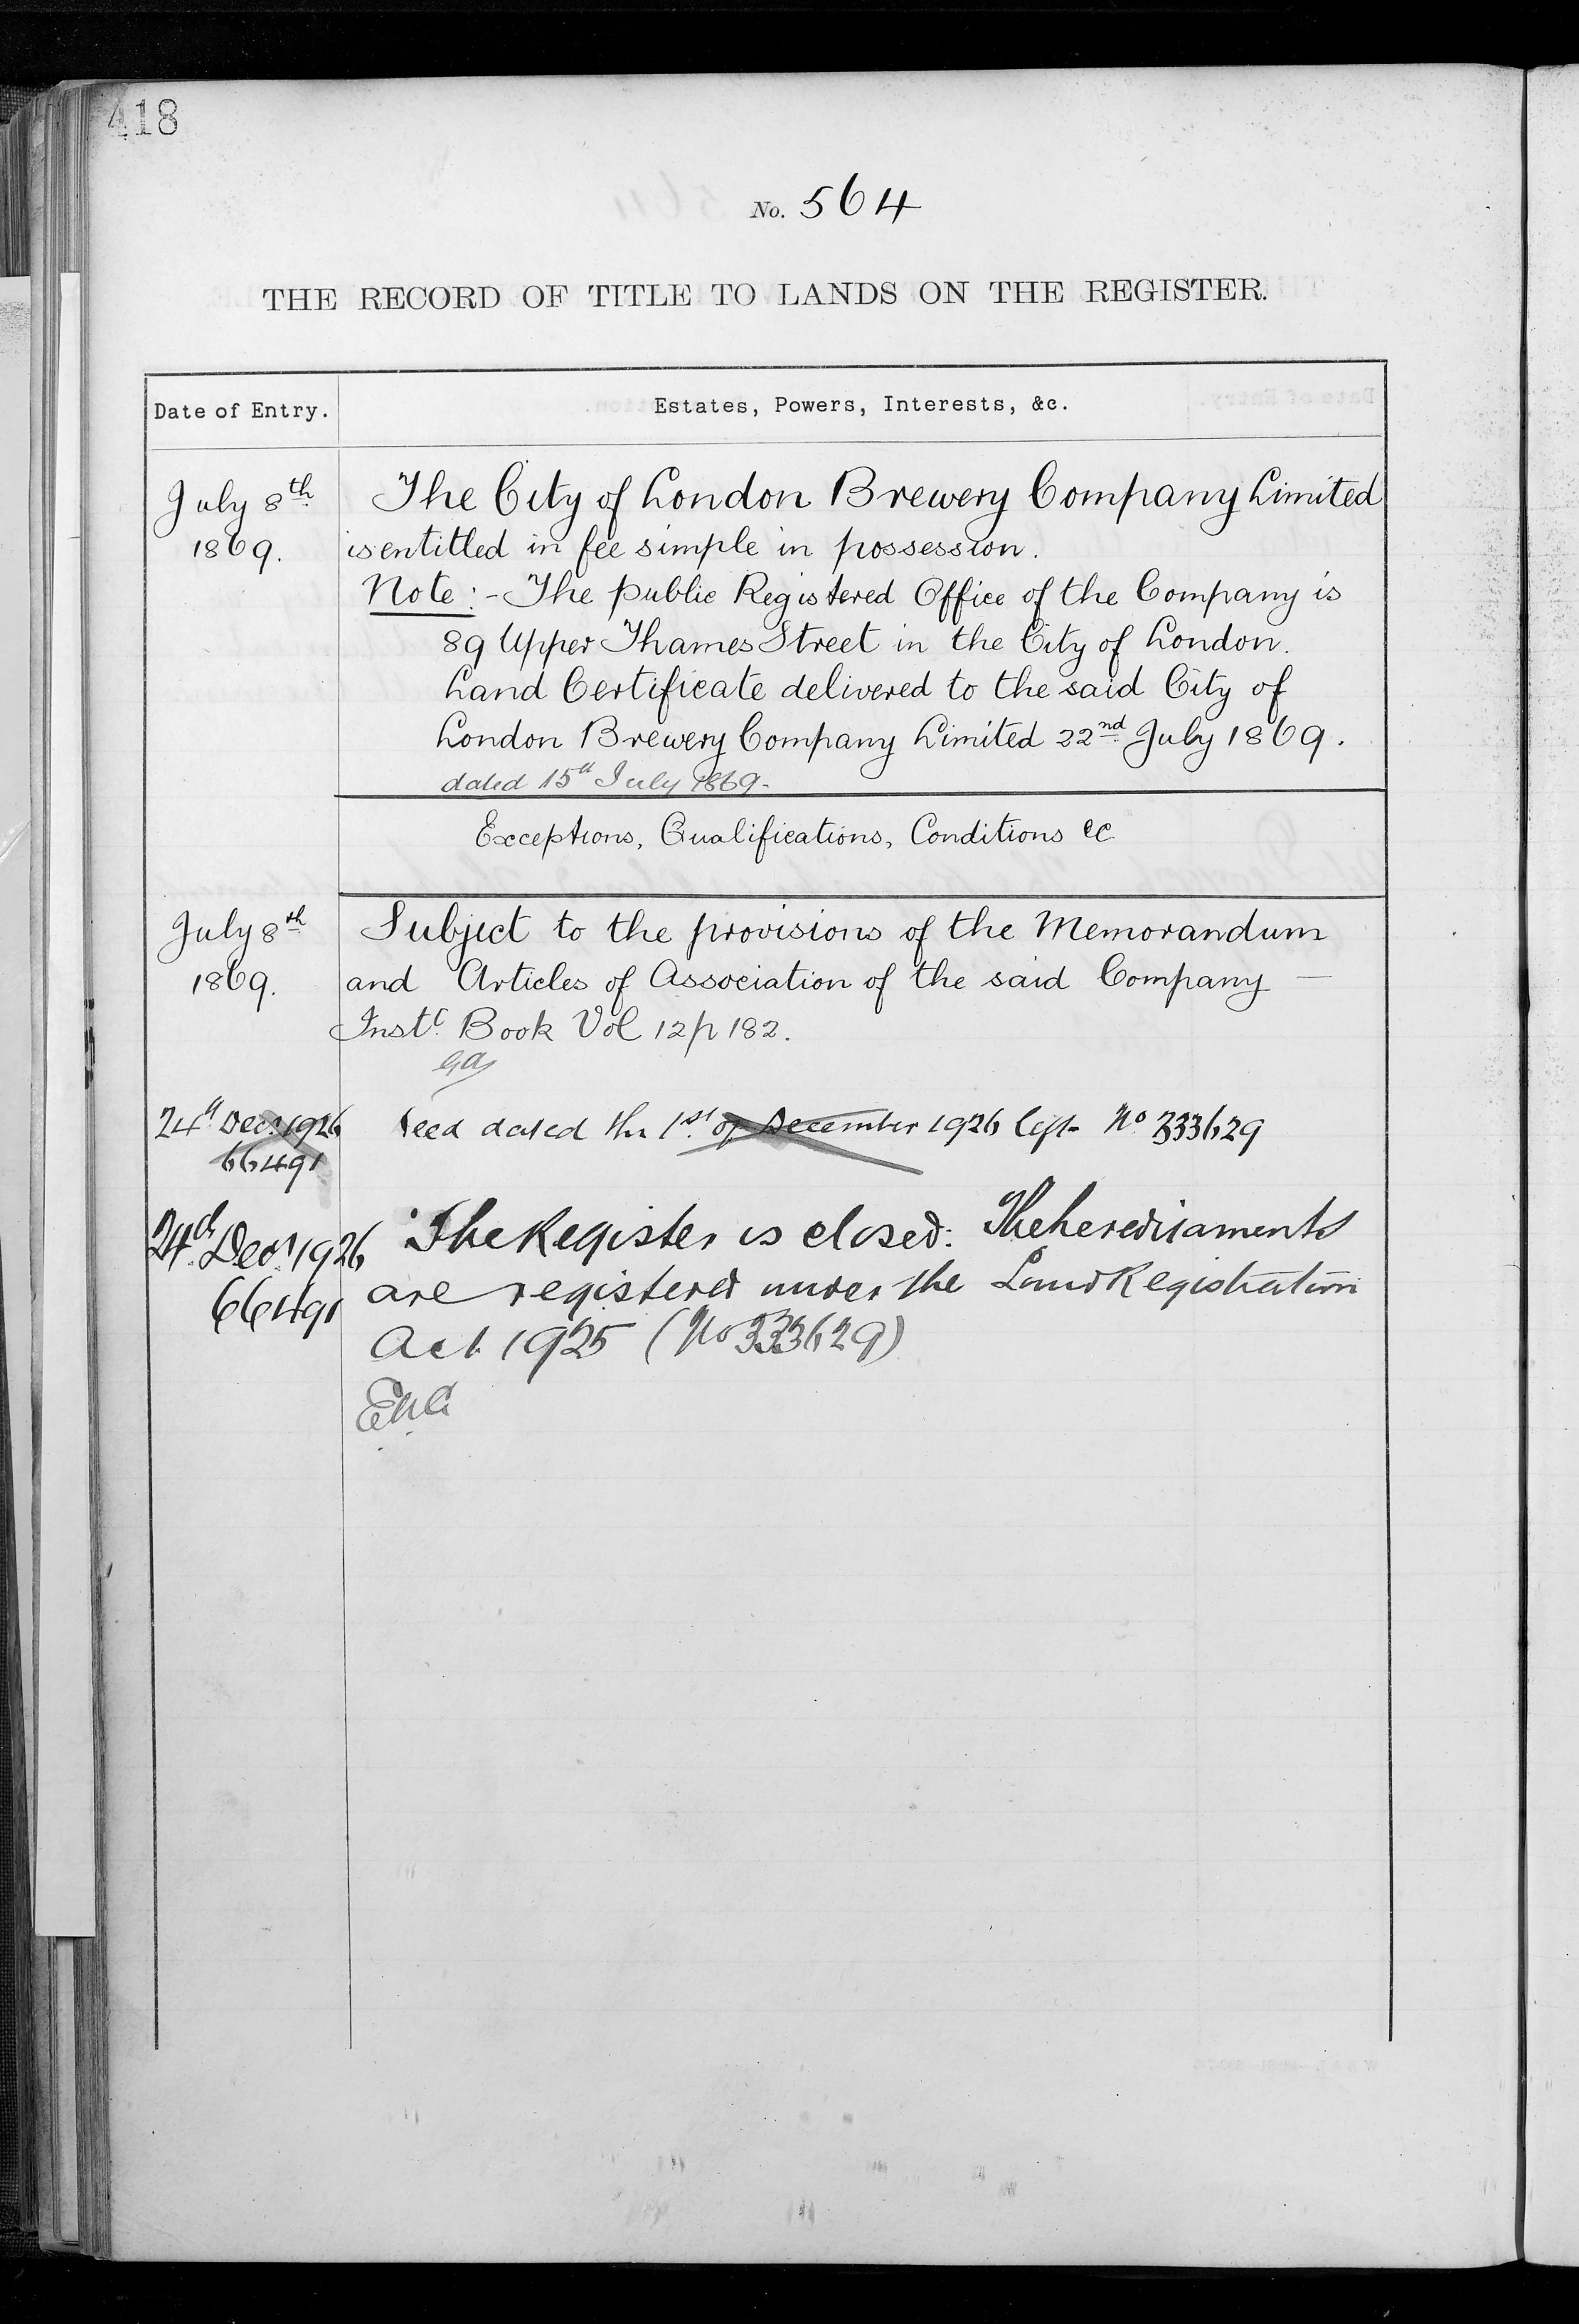 418
No. 564
THE RECORD OF TITLE TO LANDS ON THE REGISTER.
Date of Entry. Estates, Powers, Interests, &c.
July 8th The City of London Brewery Company Limited
1869. is entitled in fee simple in possession.
Note:- The public Registered Office of the Company is
89 Upper Thames Street in the City of London.
Land Certificate delivered to the said City of
London Brewery Company Limited 22nd July 1869.
dated 15th July 1869.
Exceptions, Qualifications, Conditions &c
July 8th Subject to the provisions of the Memorandum
1869. and Articles of Association of the said Company —
Inst. Book Vol 12 p 182.
24th Decr. 1926 deed dated the 1st of December 1926 No 333629
66491
24th Decr. 1926 The Register is closed. The hereditaments
66491 are registered under the Land Registration
Act 1925 (No 333629)